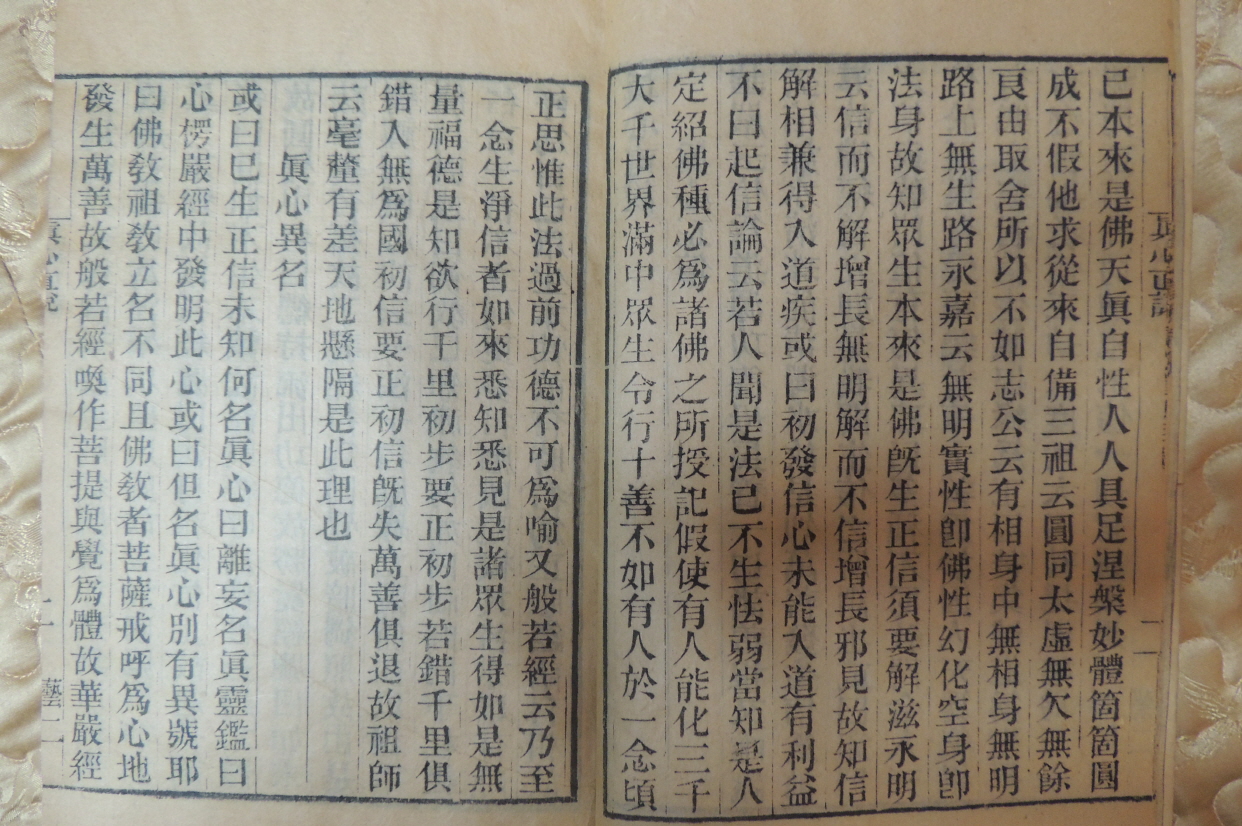 眞心直說
己本來是佛天眞自性人人具足涅槃妙體箇箇圓
成不假他求從來自備三祖云圓同太虛無欠無餘
良由取舍所以不如志公云有相身中無相身無明
路上無生路永嘉云無明實性卽佛性幻化空身卽
法身故知眾生本來是佛旣生正信須要解滋永明
云信而不解增長無明解而不信增長邪見故知信
解相兼得入道疾或曰初發信心未能入道有利益
不曰起信論云若人聞是法已不生怯弱當知是人
定紹佛種必爲諸佛之所授記假使有人能化三千
大千世界滿中眾生令行十善不如有人於一念頃
正思惟此法過前功德不可爲喻又般若經云乃至
一念生淨信者如來悉知悉見是諸眾生得如是無
量福德是知欲行千里初步要正初步若錯千里俱
錯入無爲國初信要正初信旣失萬善俱退故祖師
云毫釐有差天地懸隔是此理也
眞心異名
或曰已生正信未知何名眞心曰離妄名眞靈鑑曰
心楞嚴經中發明此心或曰但名眞心別有異號耶
曰佛敎祖敎立名不同且佛敎者菩薩戒呼爲心地
發生萬善故般若經喚作菩提與覺爲體故華嚴經
眞心直說
二
藝二